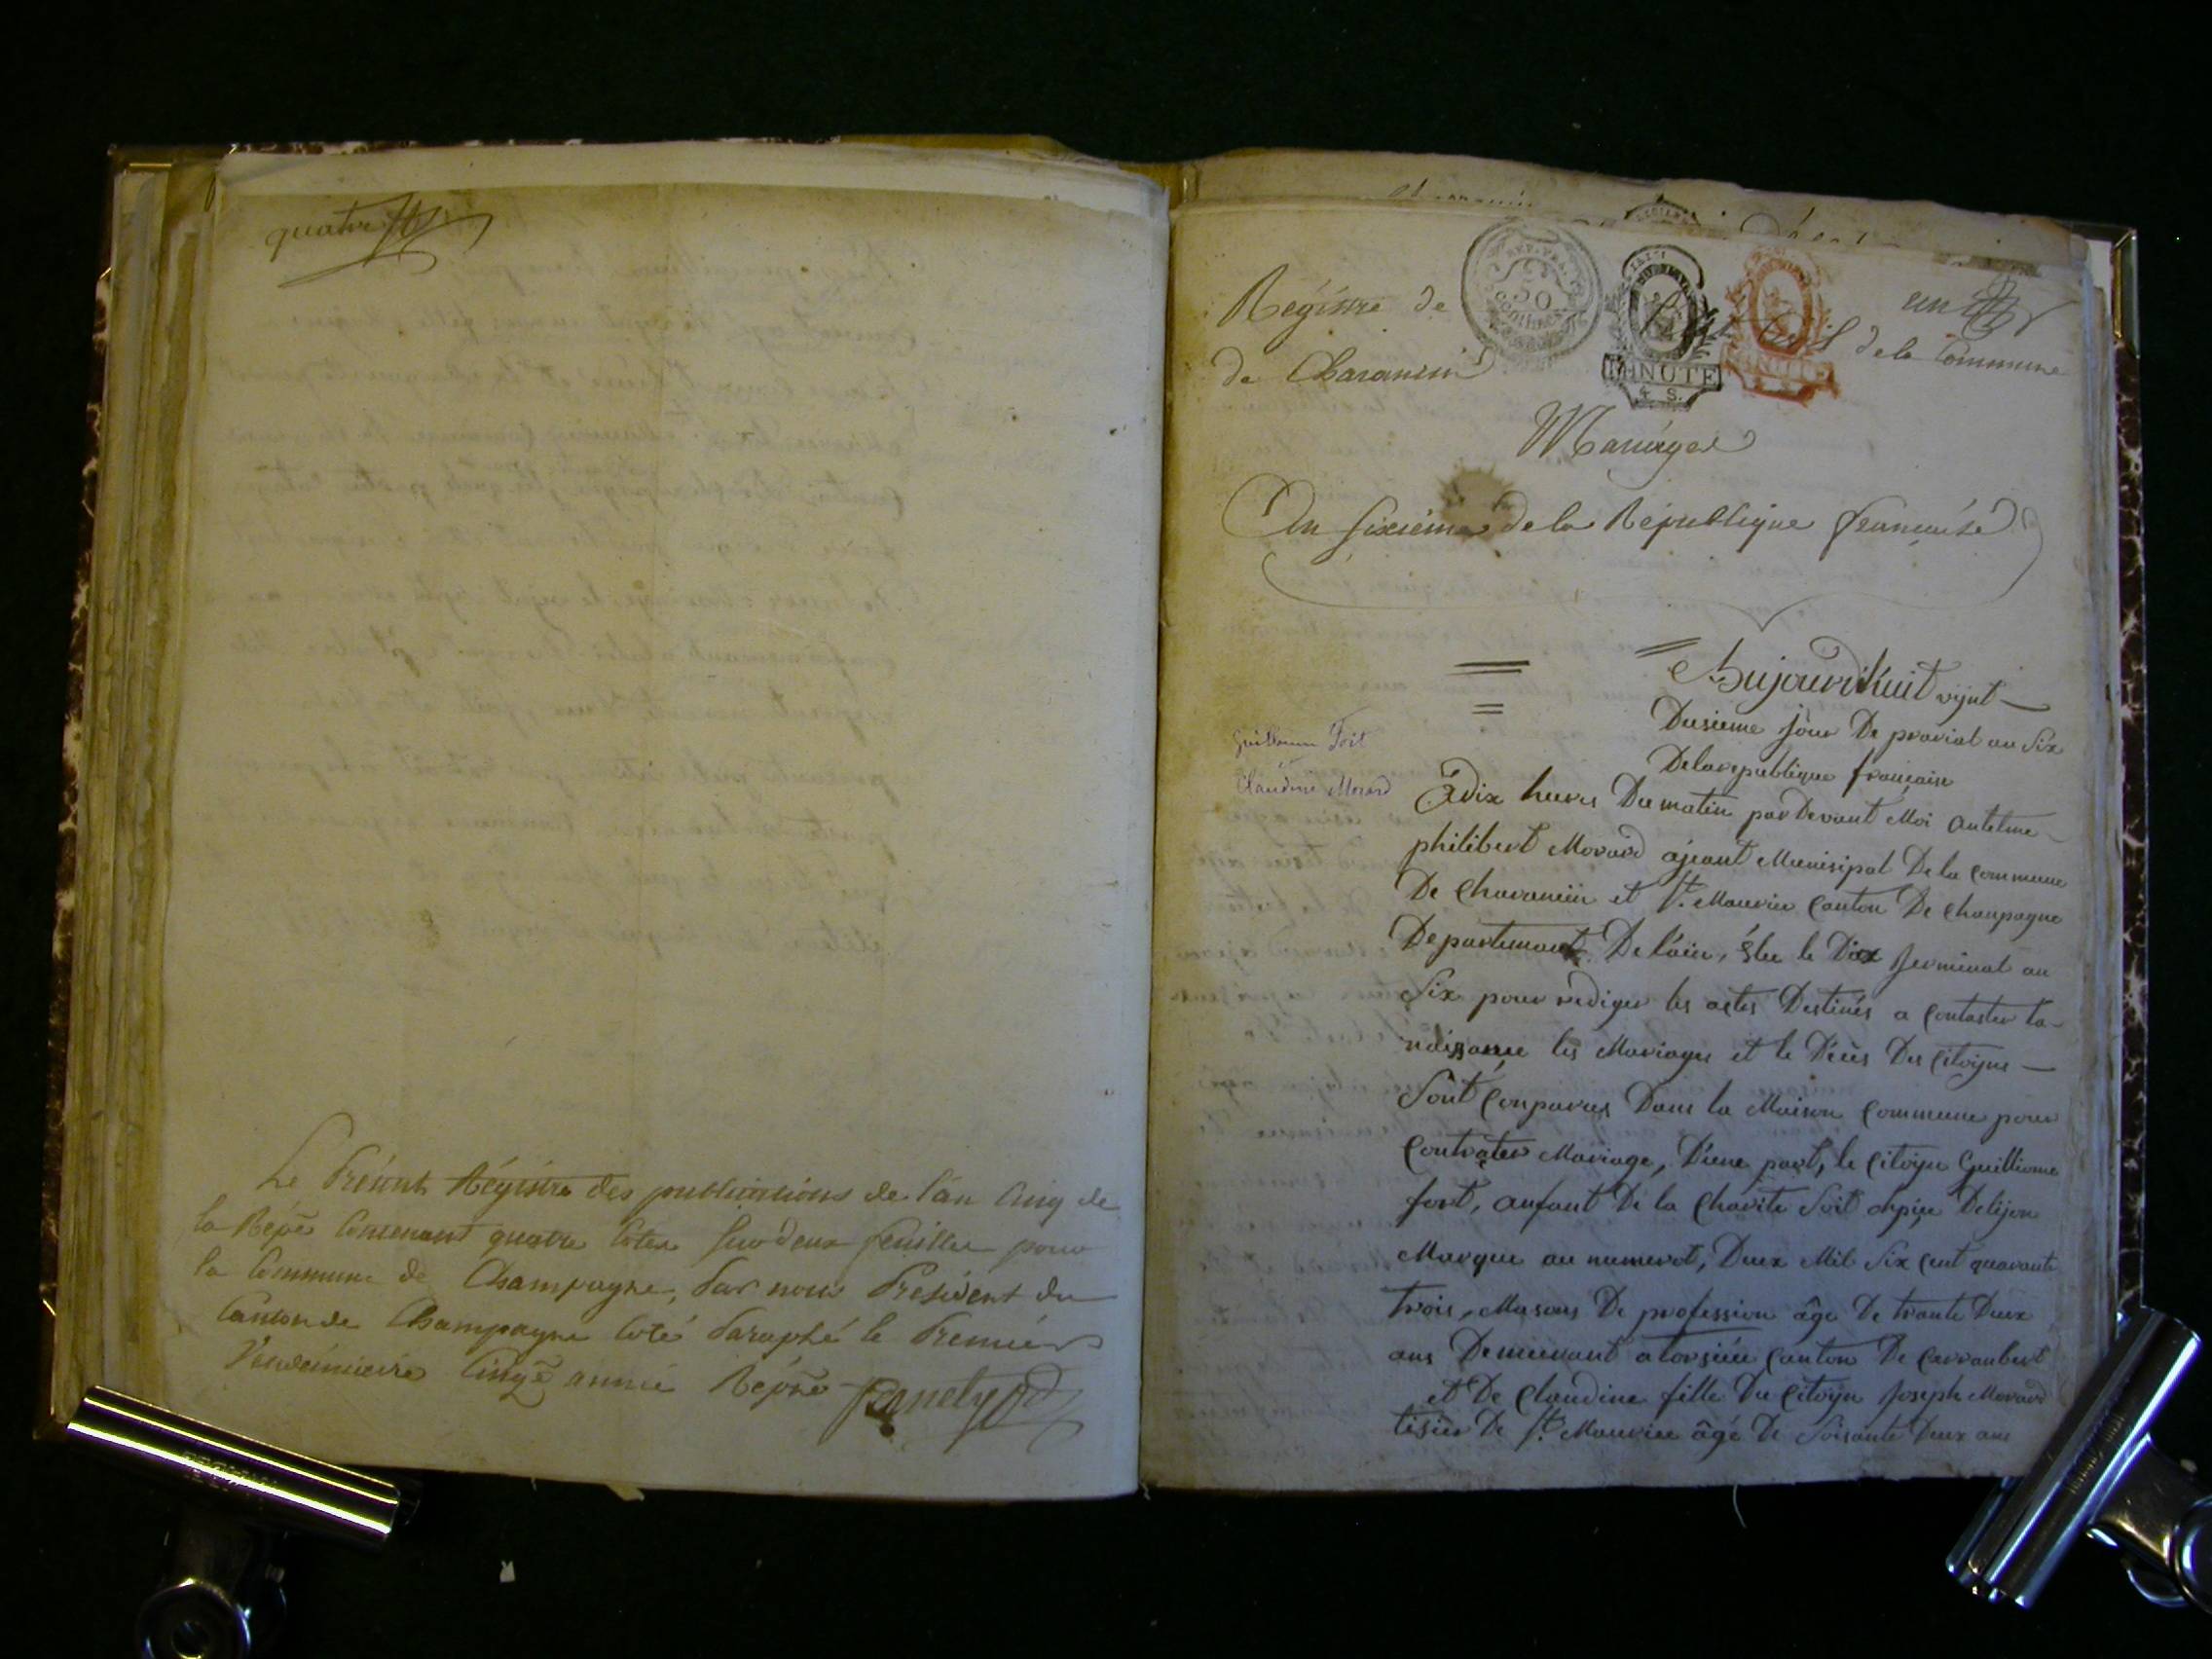 quatre
Le Présent Régistre des publications de l'an Cinq de
la Repe Contenant quatre Cotes sur deux feuilles pour
la Commune de Champagne, Par nous Président du
Canton de Champagne Coté Paraphé le Premier
Vendémiaire Cinqe année Repne
un
Régistre de l'Etat Civil de la Commune
de Charancin
REP. FRA.
50
centimes
MINUTE
4 S.
MINUTE
4 S.
Mariages
An sixième de la République française
Aujourd'huit vingt
Dusieme jour De prarial an Six
Delarepublique françaisse
Guillaume Fort
Claudine Morard
Adix heures Du matin parDevant Moi antelme
philibert Morard ajeant Munisipal De la commune
De Charancin et St. Maurice Canton De Chanpagne
Departemant De lain, élu le Dix Jerminal an
Six pour rediger les actes Destinés a Contaster la
naissance les Mariages et le Décès Des Citoyens
Sont Conparus Dans la Maison Commune pour
Contrater Mariage, D'une part, le Citoyen Guilliaume
fort, anfant De la Charite Soit ohpice Delijon
Marque au numerot, Deux Mil Six Cent quarante
trois, Masons De profession âge De trante Deux
ans Demeurant a Canton De
et De Claudine fille Du Citoyen Joseph Morard
tisier De St. Maurice âgé De Soisante Deux ans